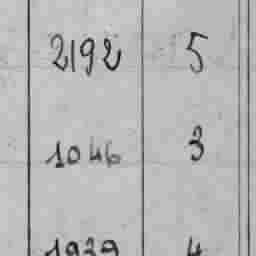 2192 5
1046 3
1939 4